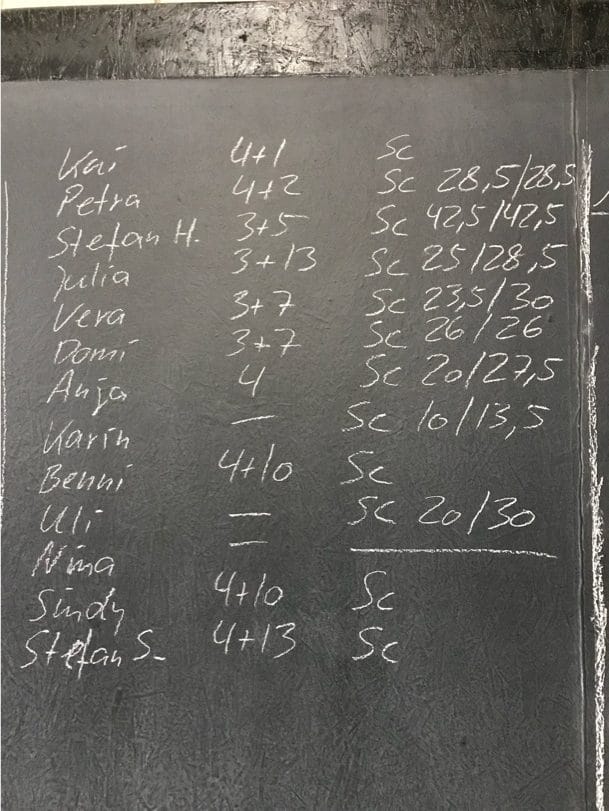 Kai 4+1 Sc
Petra 4+2 Sc 28,5/28,5
Stefan H. 3+5 Sc 42,5/42,5
Julia 3+13 Sc 25/28,5
Vera 3+7 Sc 23,5/30
Domi 3+7 Sc 26/26
Anja 4 Sc 20/27,5
Karin — Sc 10/13,5
Benni 4+10 Sc
Uli — Sc 20/30
Nina — —
Sindy 4+10 Sc
Stefan S. 4+13 Sc